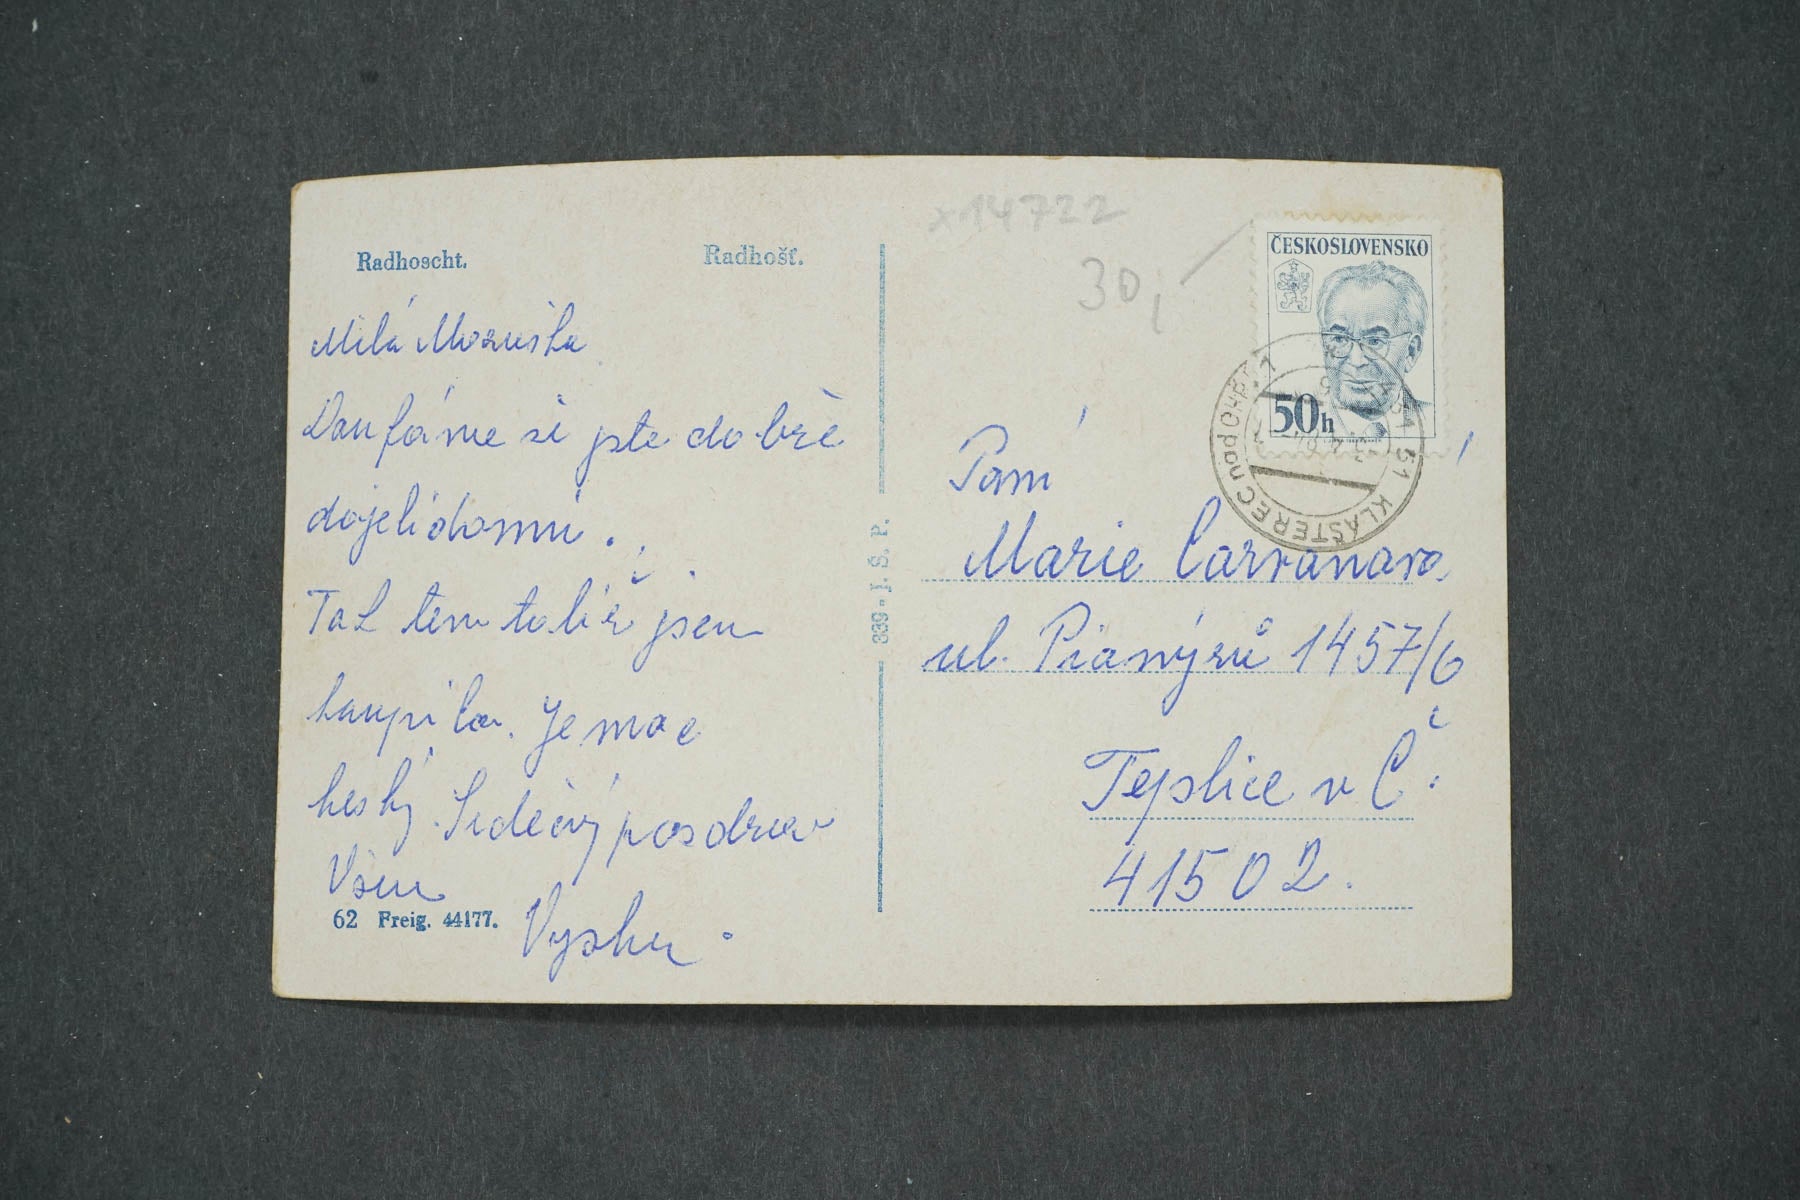 Radhoscht.
Radhošť.
x14722
30,
ČESKOSLOVENSKO
50h
KLÁŠTEREC nad OHŘÍ 1
431 51
Milá Maruška
Doufáme si jste dobře
dojeli domů.
Tak ten talíř jsem
koupila. Je moc
heský. Srdečný pozdrav
Všem
62 Freig. 44177.
339 - J. Š. P.
Paní
Marie
ul. Pionýrů 1457/6
Teplice v Č.
41502.